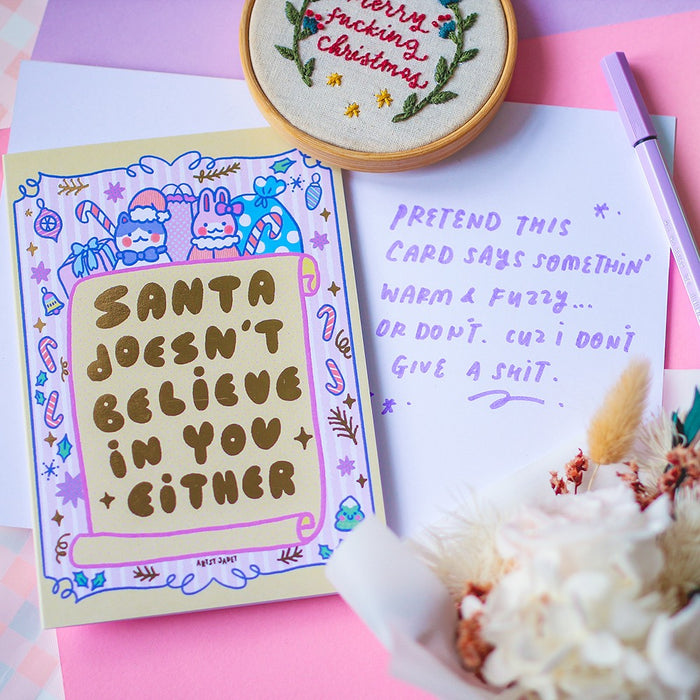 Merry
fucking
christmas
SANTA
DOESN'T
BELIEVE
IN YOU
EITHER
ARTSY CADET
PRETEND THIS
CARD SAYS SOMETHIN'
WARM & FUZZY...
OR DON'T. CUZ I DON'T
GIVE A SHIT.